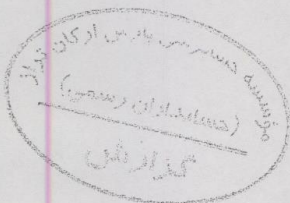 موسسه حسابرسی پارس ارکان تراز
(حسابداران رسمی)
گزارش